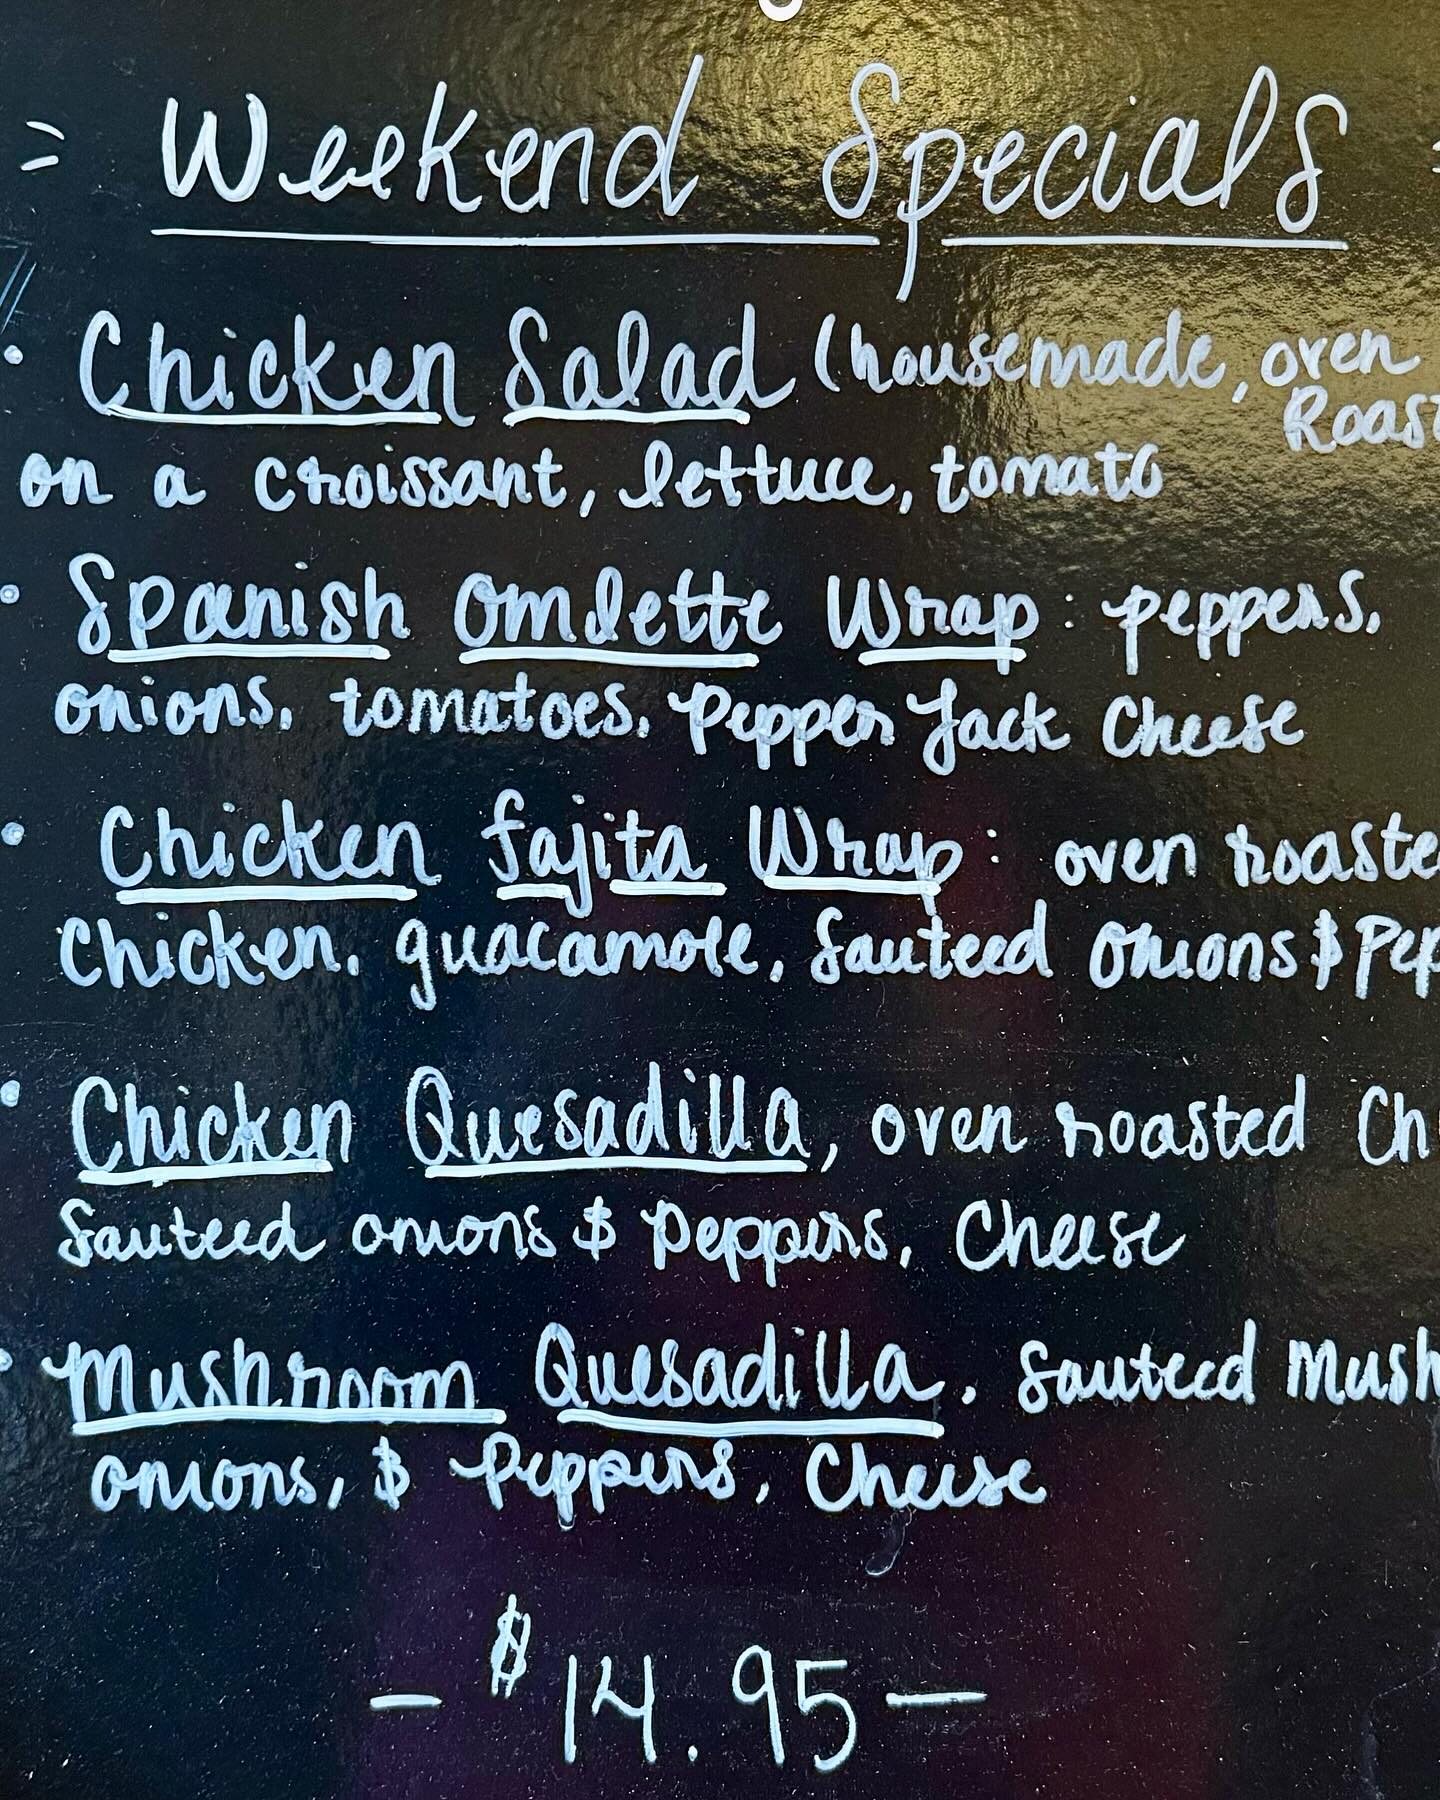 Weekend Specials
• Chicken Salad (housemade, oven
Roast
on a croissant, lettuce, tomato
• Spanish omelette Wrap: peppers,
onions, tomatoes, Pepper Jack Cheese
• Chicken fajita Wrap: oven roaste
Chicken, guacamole, Sauteed Onions & Pep
• Chicken Quesadilla, oven roasted Ch
Sauteed onions & Peppers, Cheese
• Mushroom Quesadilla. Sauteed Mush
onions, & Peppers, Cheese
- $14.95 -